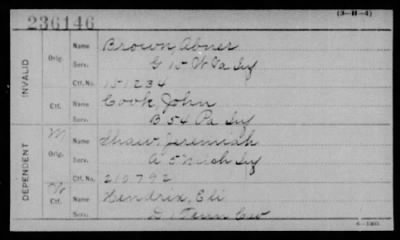 (3-H-4)
236146
INVALID
Orig.
Name Brown, Abner
Serv. G 15 W Va Inf
Ctf. No. 151234
Ctf.
Name Cook, John
Serv. B 54 Pa Inf
DEPENDENT
M
Orig.
Name Shaw, Jeremiah
Serv. A 5 Mich Inf
Ctf. No. 210792
Ctf.
Name Hendrix, Eli
Serv. D 1 Tenn Cav